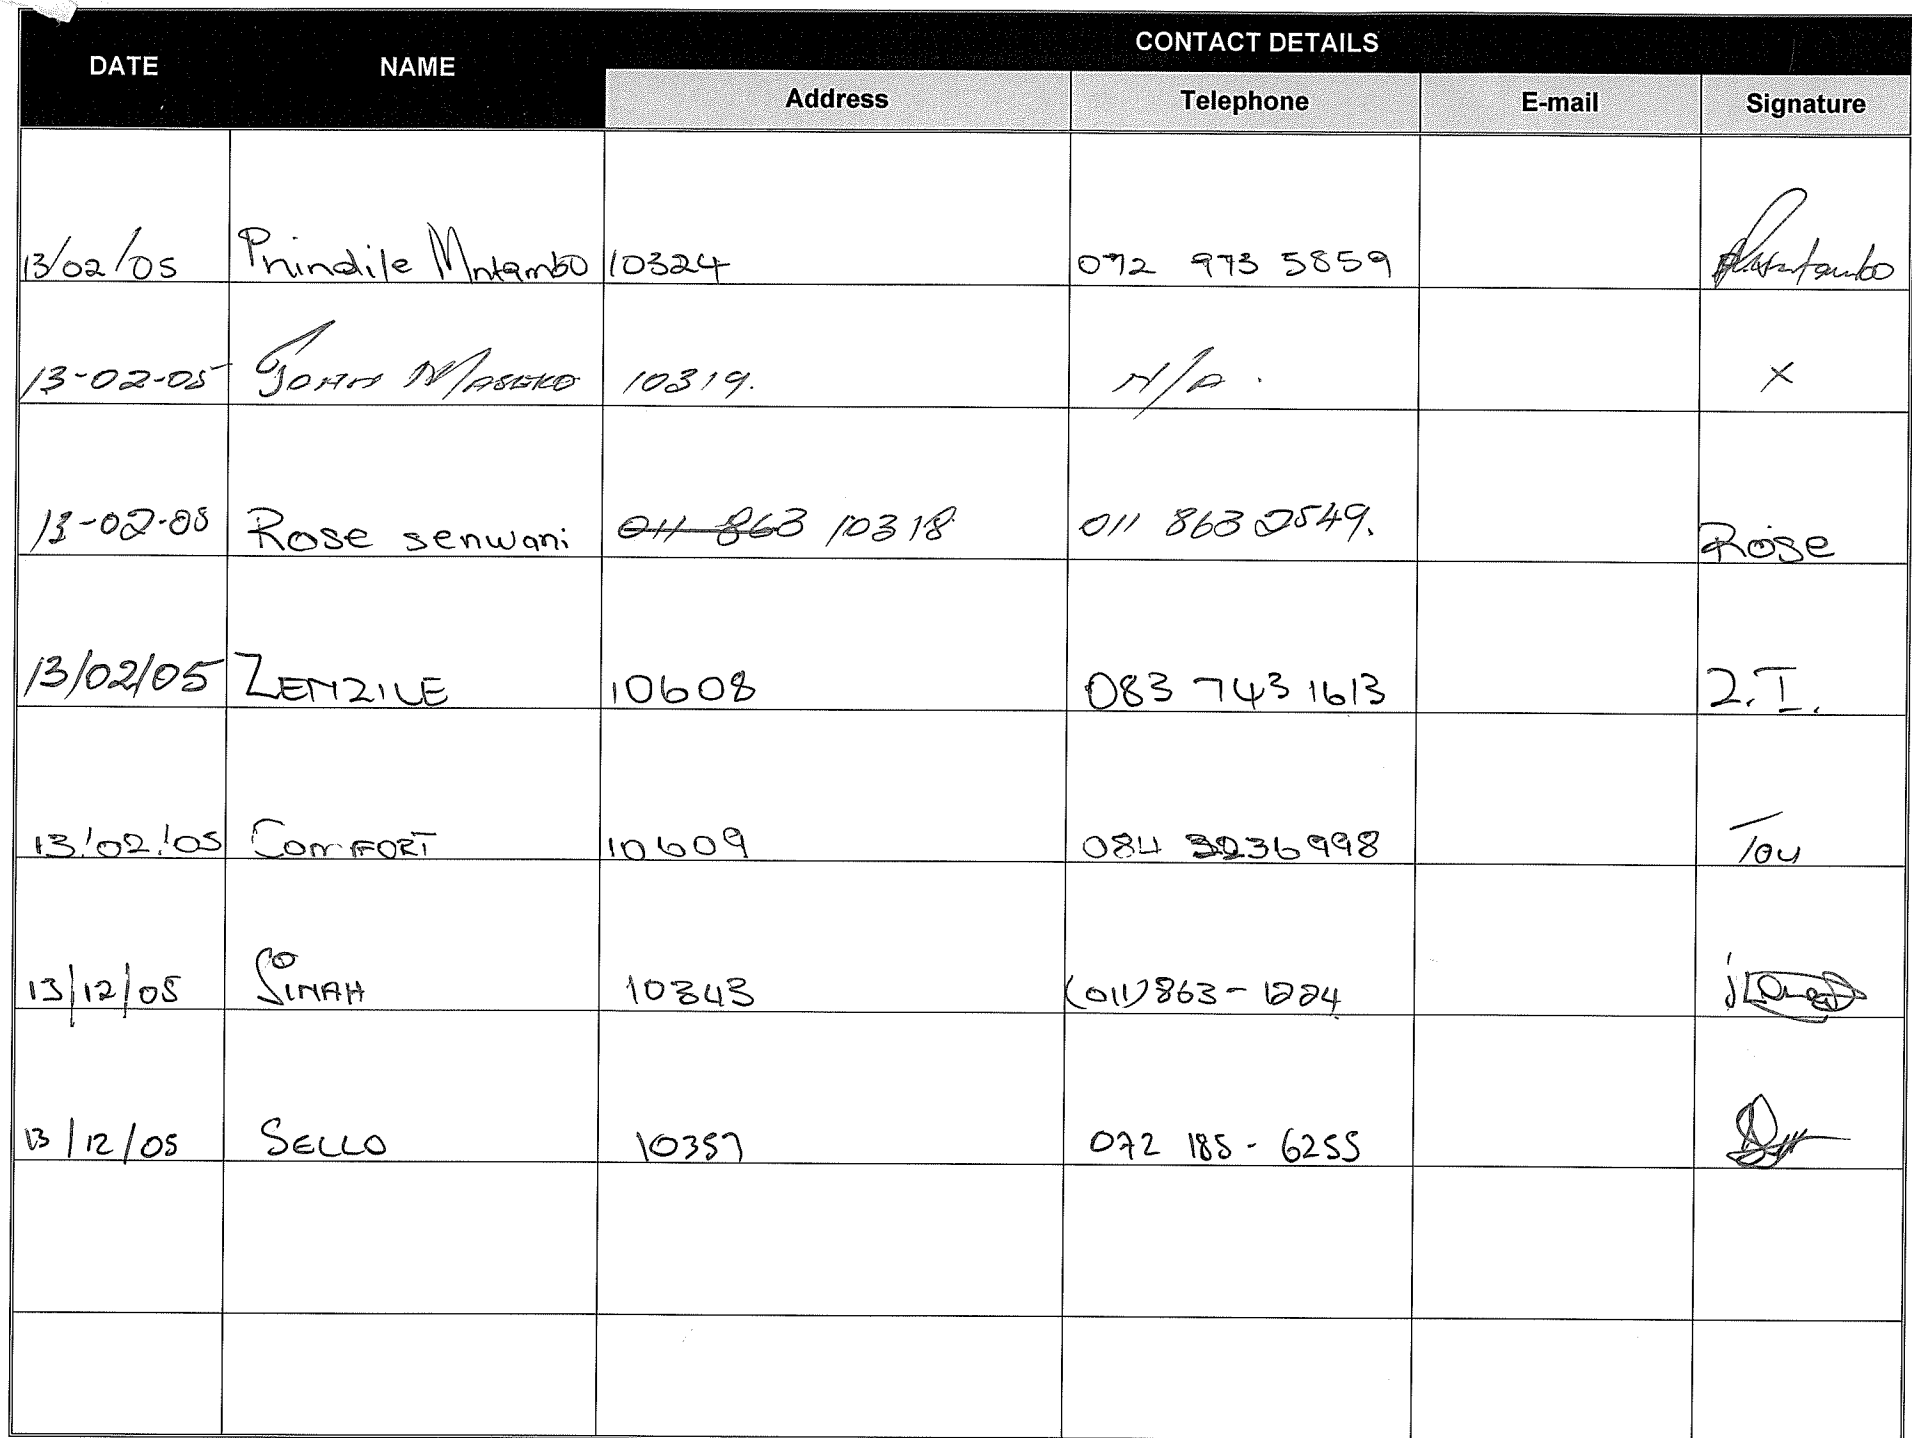 CONTACT DETAILS
DATE NAME
Address Telephone E-mail Signature
13/02/05 Phindile Mntambo 10324 072 973 5859
13-02-05 JOHN MASEKO 10319. N/A. X
13-02-05 Rose senwani 011 863 10318 011 863 2549. Rose
13/02/05 ZENZILE 10608 083 743 1613 Z.I.
13/02/05 COMFORT 10609 084 3236998
13/12/05 SINAH 10343 (011) 863-1224
13/12/05 SELLO 10357 072 185-6255